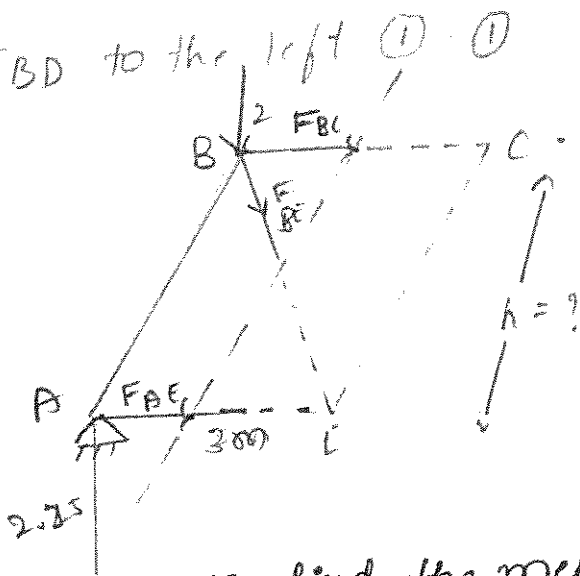 FBD to the left ① - ①
2
B FBC C
FBE
h = ?
A FAE
3m E
2.25
find the mem